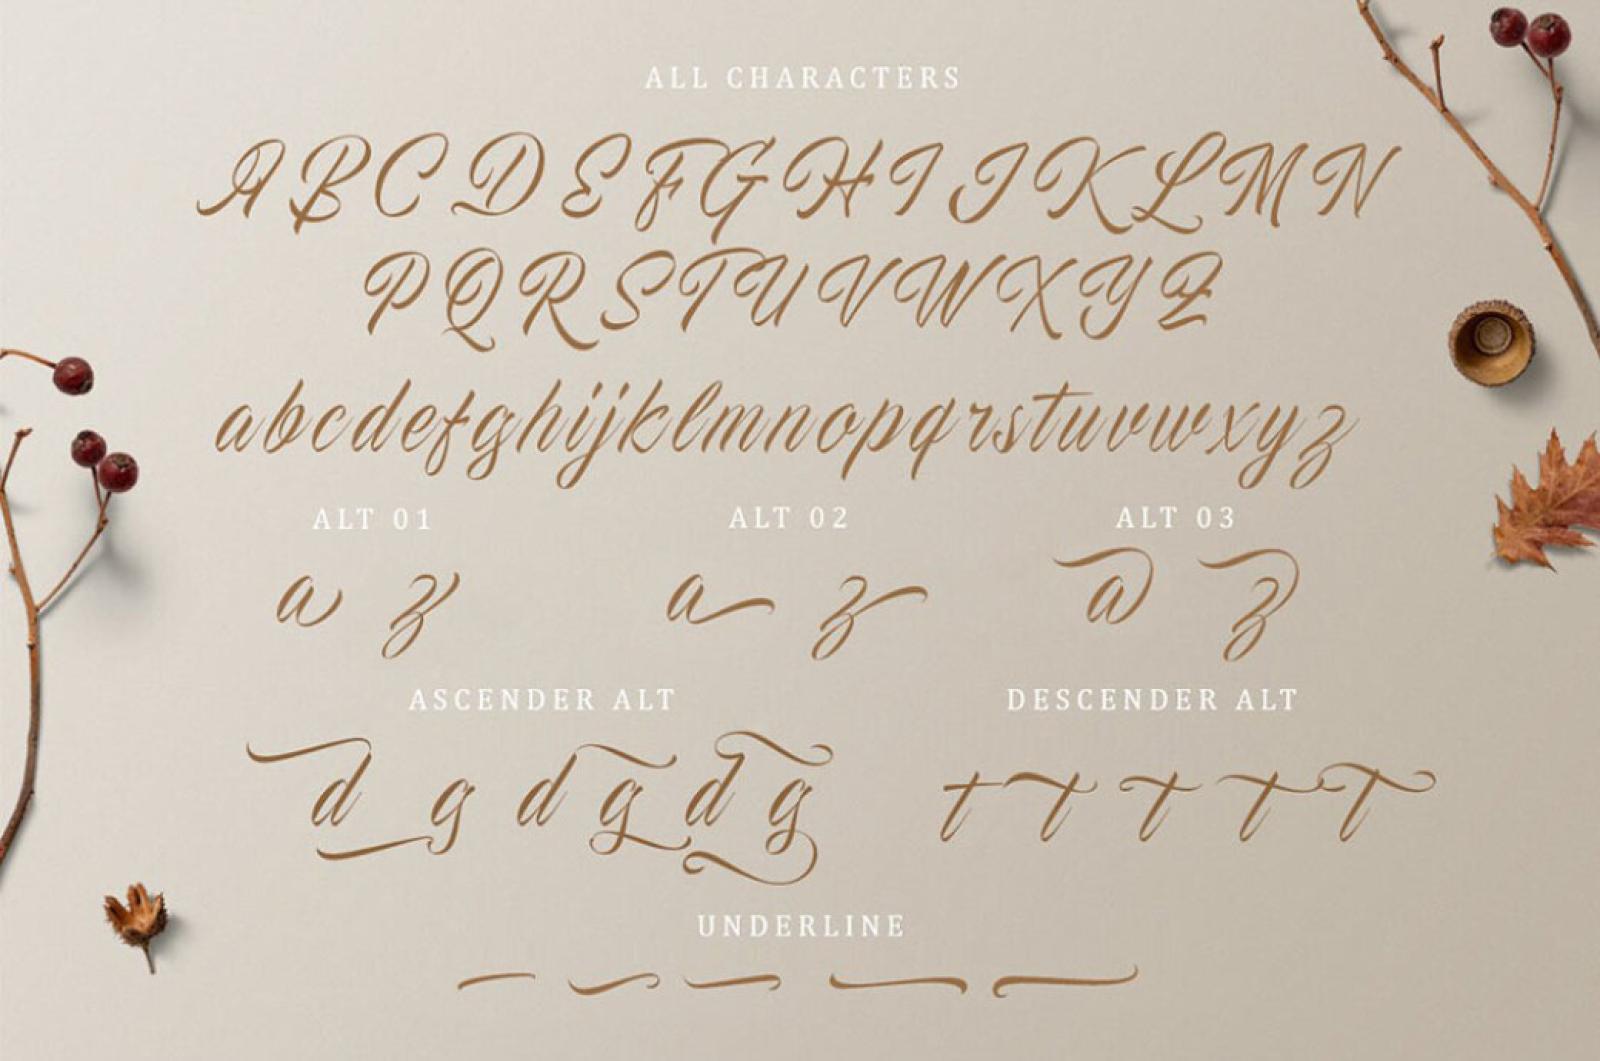 ALL CHARACTERS
A B C D E F G H I J K L M N
P Q R S T U V W X Y Z
abcdefghijklmnopqrstuvwxyz
ALT 01 ALT 02 ALT 03
a z a z a z
ASCENDER ALT DESCENDER ALT
d g d g d g t t t t t
UNDERLINE